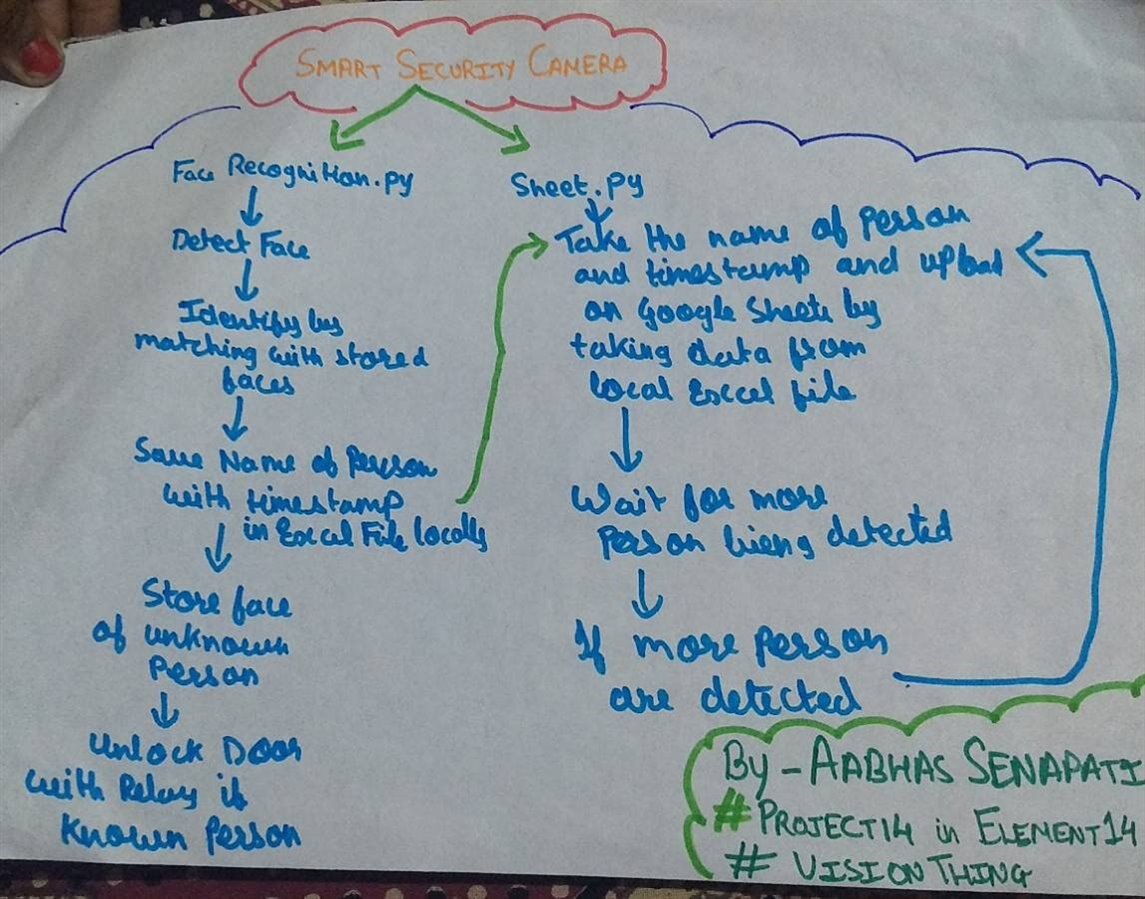 SMART SECURITY CAMERA
Face Recognition.py
Detect Face
Identify by
matching with stored
faces
Save Name of Person
with timestamp
in Excel File locally
Store face
of unknown
Person
Unlock Door
with Relay if
Known Person
Sheet.py
Take the name of Person
and timestamp and upload
on Google Sheets by
taking data from
local Excel file
Wait for more
Person bieng detected
If more person
are detected
By - AABHAS SENAPATI
# PROJECT14 in ELEMENT14
# VISION THING